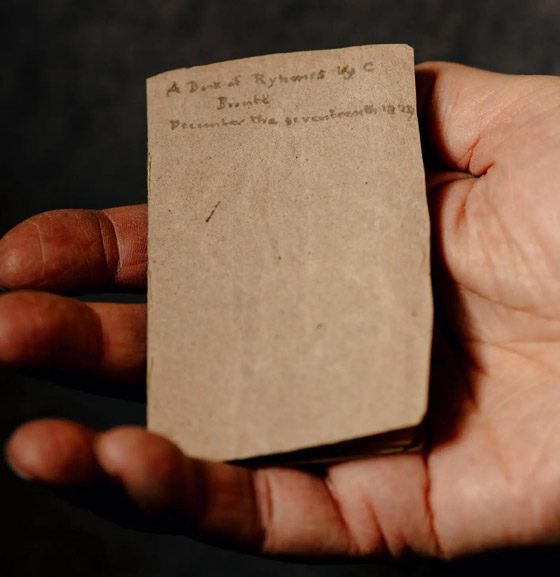 A Book of Ryhmes by C
Bronte
December the seventeenth 1829